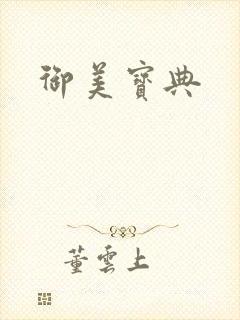 御美寶典
董雲上